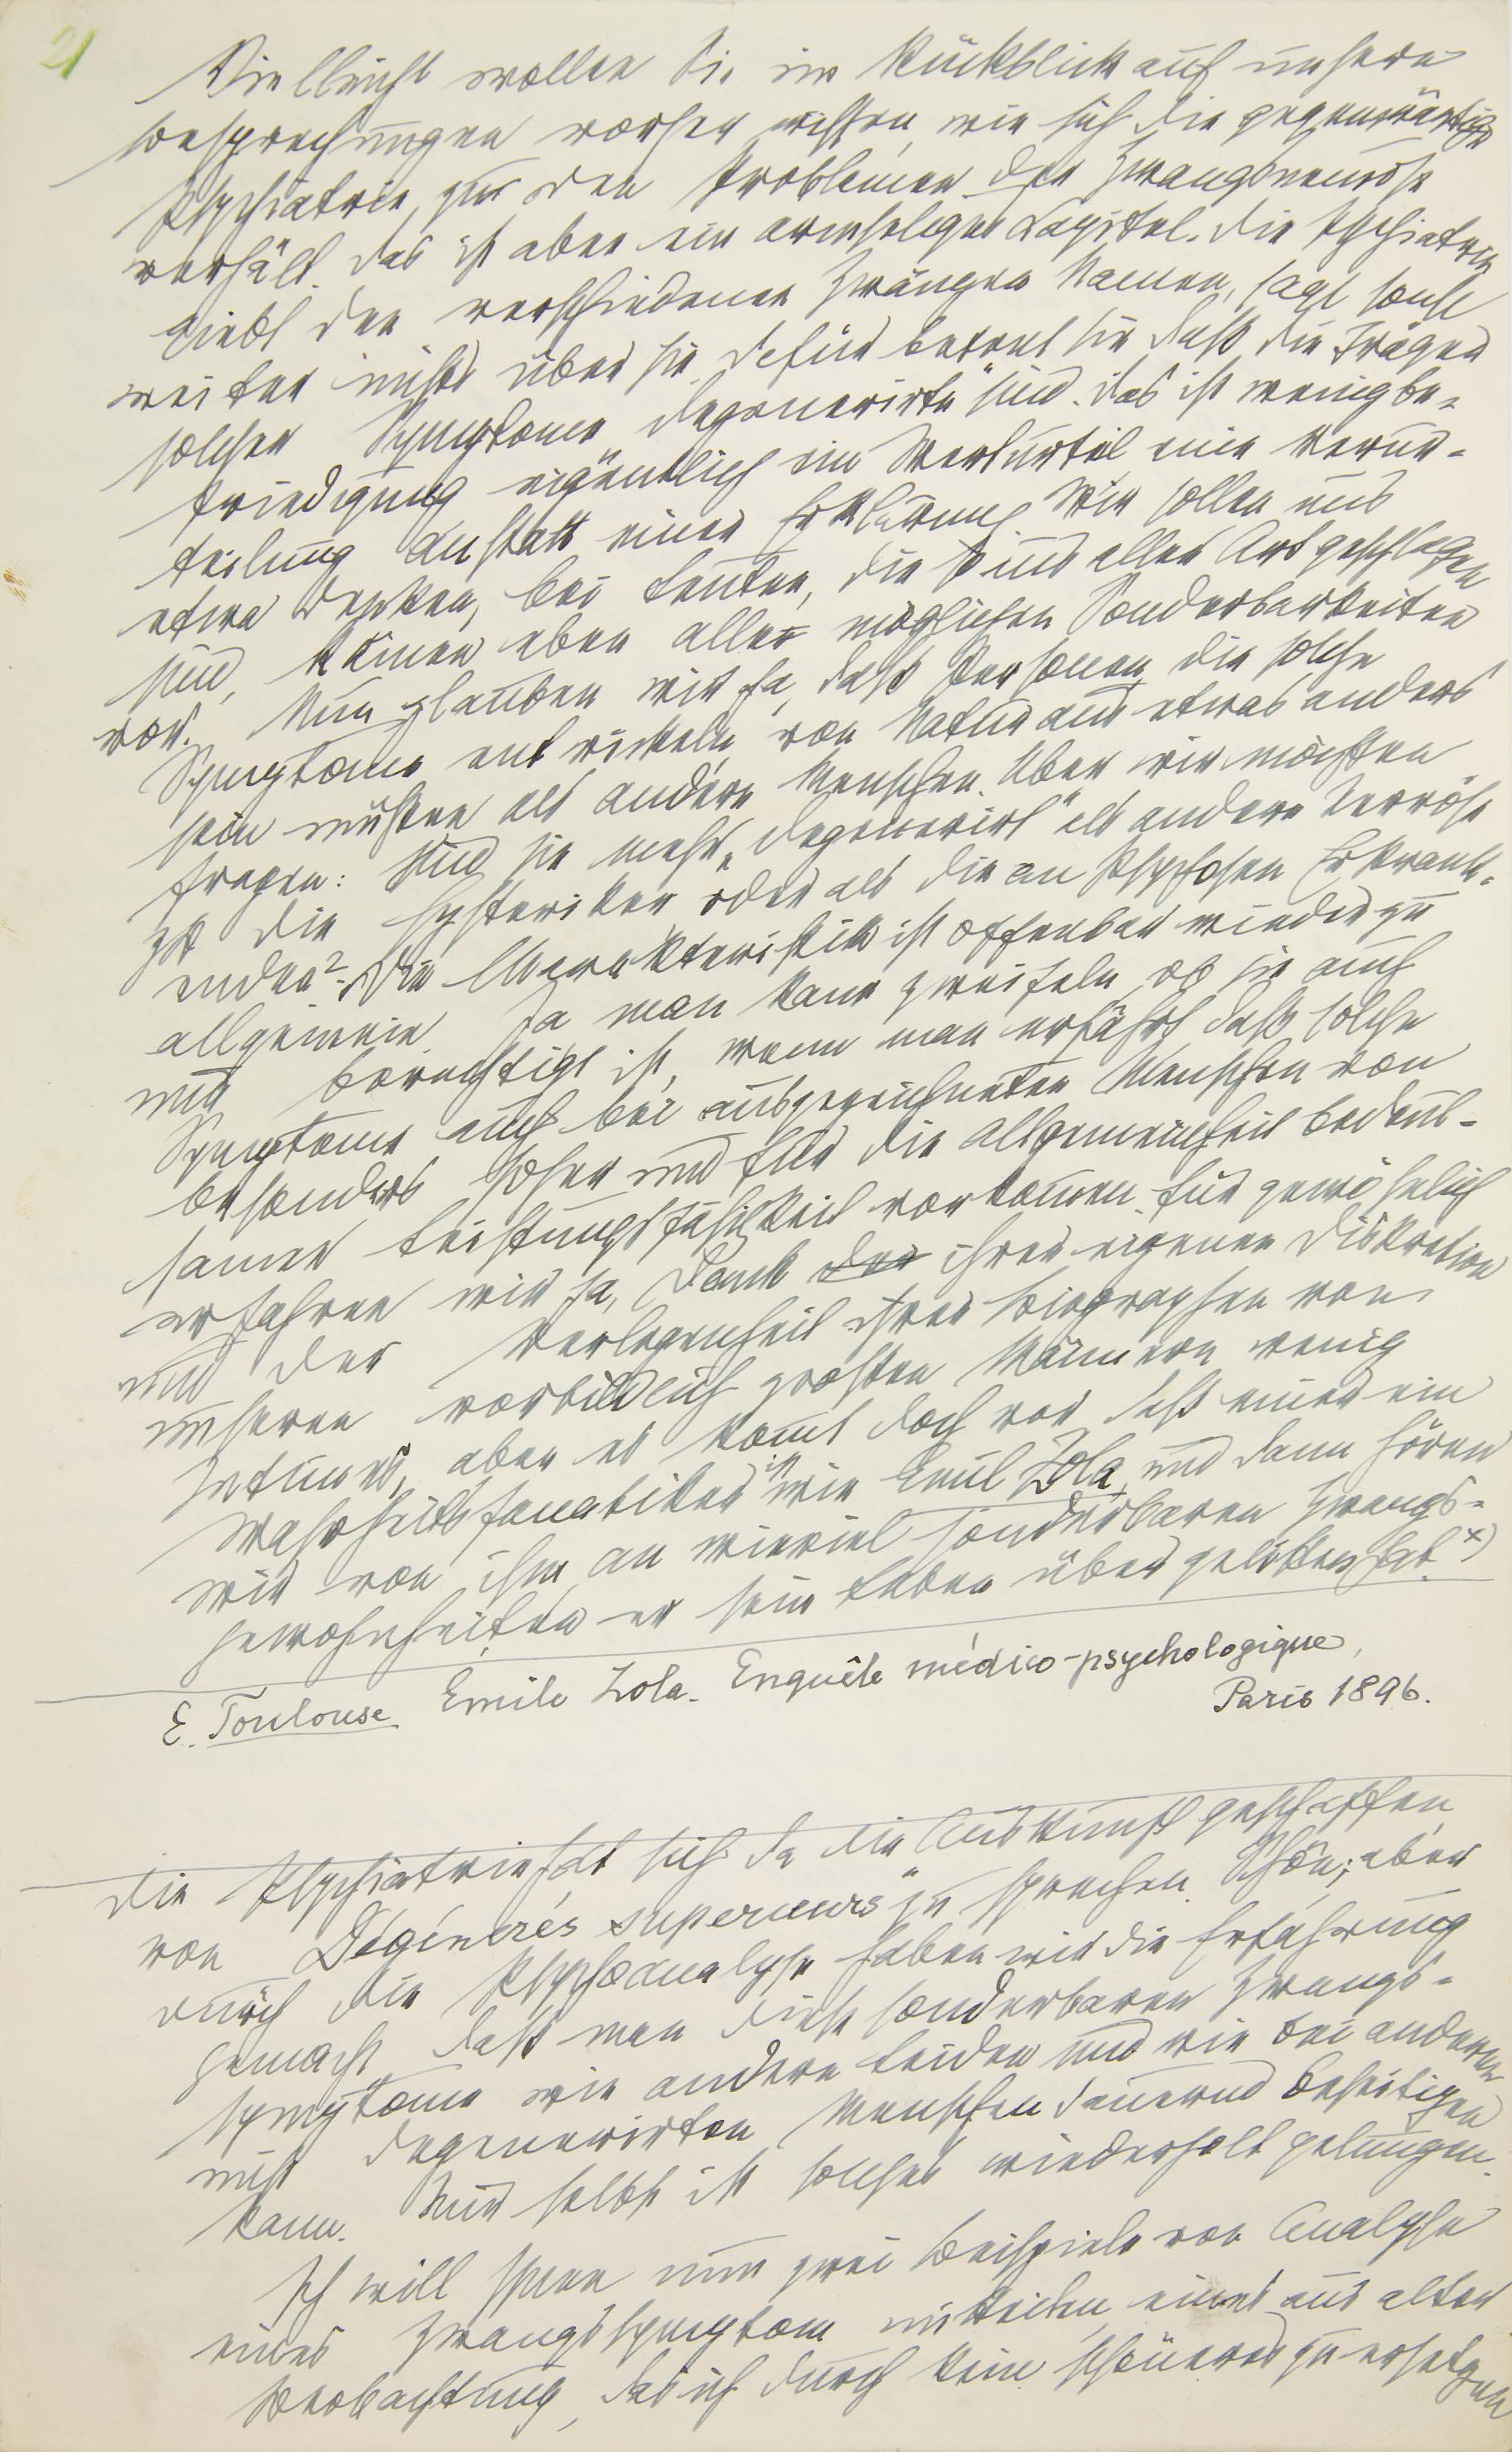 21
Vielleicht wollen Sie im Rückblick auf unsere
Besprechungen vorher wissen, wie sich die gegenwärtige
Psychiatrie zu den Problemen der Zwangsneurose
verhält. Das ist aber ein armseliges Kapitel. Die Psychiatrie
giebt den verschiedenen Zwängen Namen, sagt sonst
weiter nichts über sie. Dafür betont sie daß die Träger
solcher Symptome „Degenerirte" sind. Das ist wenig Be-
friedigung eigentlich ein Werturteil, eine Verur-
teilung anstatt einer Erklärung. Wir sollen uns
etwa denken, bei Leuten, die aus aller Art geschlagen
sind, kämen eben alle möglichen Sonderbarkeiten
vor. Nun glauben wir ja, daß Personen, die solche
Symptome entwickeln, von Natur aus etwas anders
sein müßten als andere Menschen. Aber wir möchten
fragen: Sind sie mehr „degenerirt" als andere Nervöse
zB die Hysteriker oder als die an Psychosen Erkrank-
enden? Die Charakteristik ist offenbar wieder zu
allgemein. Ja man kann zweifeln, ob sie auch
nur berechtigt ist, wenn man erfährt daß solche
Symptome auch bei ausgezeichneten Menschen von
besonders hoher und für die Allgemeinheit bedeut-
samer Leistungsfähigkeit vorkommen. Für gewöhnlich
erfahren wir ja, Dank der ihrer eigenen Diskretion
und der Verlogenheit ihrer Biographen von
unseren vorbildlich großen Männern wenig
Intimes, aber es kommt doch vor daß einer ein
Wahrheitsfanatiker ist wie Emil Zola, und dann hören
wir von ihm, an wieviel sonderbaren Zwangs-
gewohnheiten er sein Leben über gelitten hat. x)
E. Toulouse. Emile Zola. Enquête médico-psychologique,
Paris 1896.
Die Psychiatrie hat sich da die Auskunft geschaffen,
von „Dégénerés superieurs" zu sprechen. Schön; aber
durch die Psychoanalyse haben wir die Erfahrung
gemacht, daß man diese sonderbaren Zwangs-
symptome wie andere Leiden und wie bei anderen
nicht degenerirten Menschen dauernd beseitigen
kann. Mir selbst ist solches wiederholt gelungen.
Ich will Ihnen nun zwei Beispiele von Analyse
eines Zwangssymptom mitteilen, eines aus alter
Beobachtung, das ich durch kein schöneres zu ersetzen